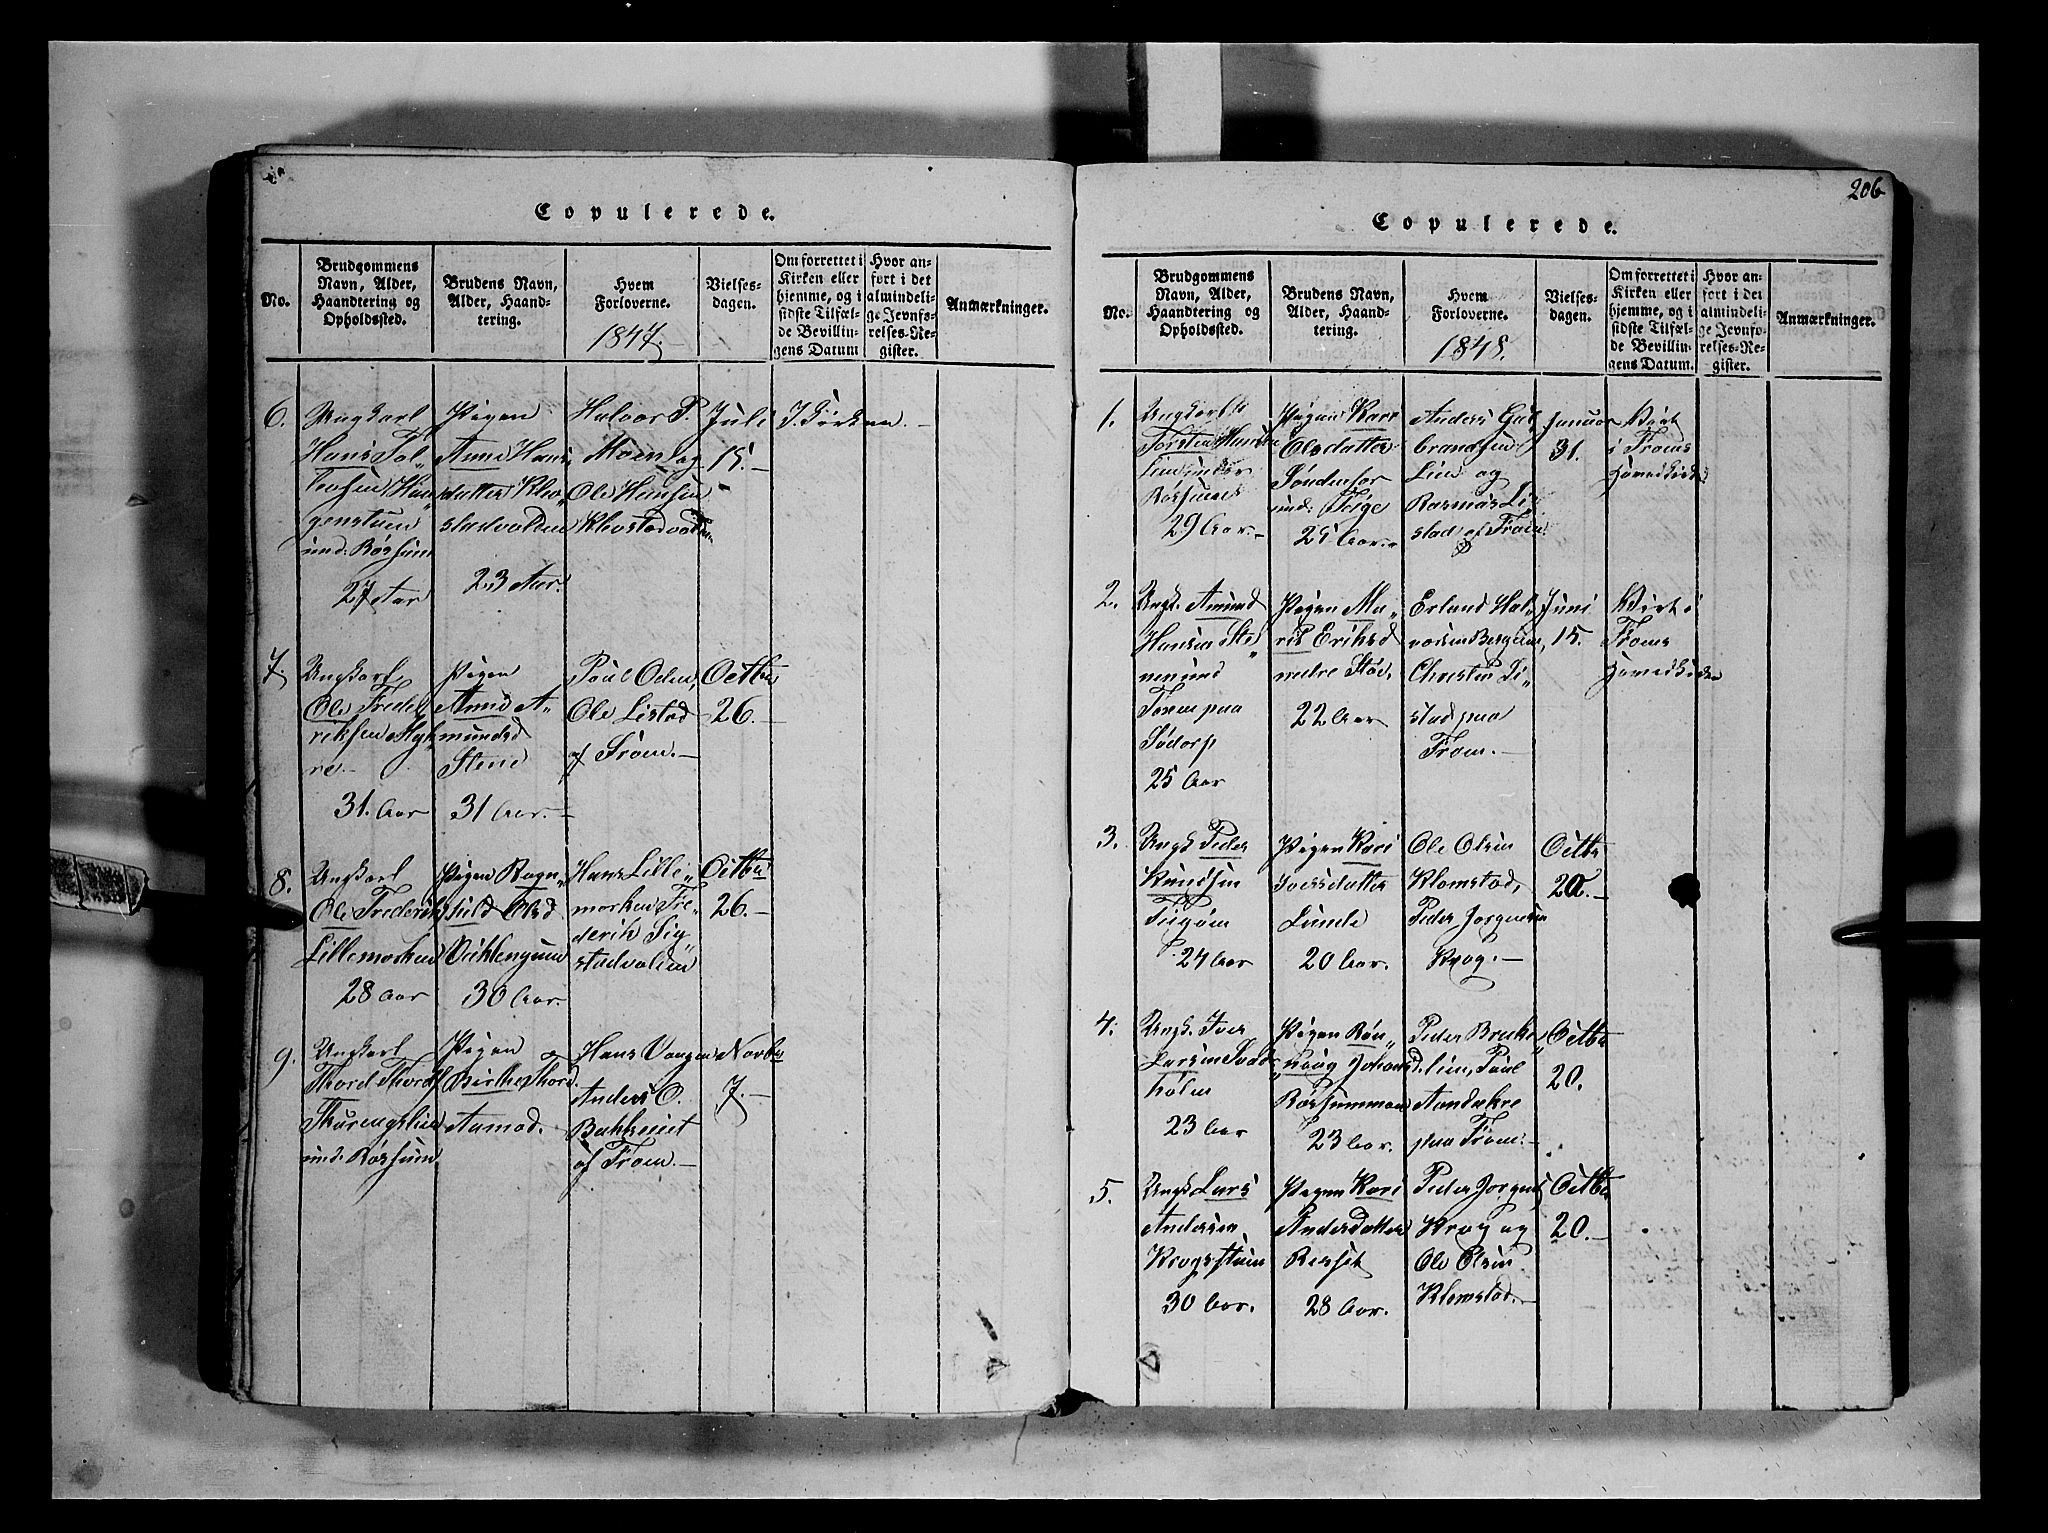 Copulerede.
No.
Brudgommens
Navn, Alder,
Haandtering og
Opholdssted.
Brudens Navn,
Alder, Haand-
tering.
Hvem
Forloverne.
1847.
Vielses-
dagen.
Om forrettet i
Kirken eller
hjemme, og i
sidste Tilfæl-
de Bevillin-
gens Datum
Hvor an-
ført i det
almindeli-
ge Jevnfø-
relses-Re-
gister.
Anmærkninger.
6.
Ungkarl
Hans Tol-
levsen
und:
27 Aar
Pigen
Anne Hans
datter Klev
stadvolden
23 Aar.
Halvor P.
Moen og
Ole Hansen
Klevstadvolden
Juli
15.
I Kirken.
7
Ungkarl
Ole Frede-
riksen Myh
re.
31. Aar
Pigen
Anne A-
mundsd
Stene
31 Aar.
Poul Oden,
Ole Listad
af Froen.
Octbr
26.
8.
Ungkarl
Ole Frederik
Lillemorken
28 Aar
Pigen Ragn-
hild Olsd
30 Aar.
Hans Lille-
morken Fre-
derik Sig
stadvolden
Octbr
26.
9.
Ungkarl
Thord Thords.
und:
Pigen
Birthe Thord.
Aamod.
Hans Vangen
Anders O.
af Froen.
Novbr
7.
206
Copulerede.
No.
Brudgommens
Navn, Alder,
Haandtering og
Opholdssted.
Brudens Navn,
Alder, Haand-
tering.
Hvem
Forloverne.
1848.
Vielses-
dagen.
Om forrettet i
Kirken eller
hjemme, og i
sidste Tilfæl-
de Bevillin-
gens Datum.
Hvor an-
ført i det
almindeli-
ge Jevnfø-
relses-Re-
gister.
Anmærkninger.
1.
Ungkarl
Torsten Hansen
29 Aar.
Pigen Kari
Olsdatter
und:
25 Aar.
Anders Gul
brandsen
Lien og
Rasmus Li
stad af Froen.
Januar
31.
Viet
i Froens
Hovedkirke
2.
Ungk. Amund
Hansen Ste-
Sødorp
25 Aar
Pigen Ma-
rit Eriksd
22 Aar
Erland Hal-
Christen Li-
stad paa
Froen.
Juni
15.
Viet i
Froens
Hovedkirke
3.
Ungk Peder
Knudsen
24 Aar
Pigen Kari
Iversdatter
Lunde
20 Aar.
Ole Olsen
Klomstad,
Peder Jørgensen
Krog.
Octbr
20.
4.
Ungk. Iver
Larsen
23 Aar
Pigen Rön-
naug Johansd.
23 Aar.
Peder Brekke-
lien, Poul
paa Froen.
Octbr
20.
5.
Ungk Lars
Andersen
Krogsstuen
30 Aar.
Pigen Kari
Andersdatter
28 Aar.
Peder Jørgens
Krog og
Ole Olsen
Klomstad.
Octbr
20.